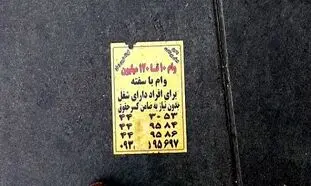 وام ۱۰ تا ۱۲۰ میلیون
وام با سفته
برای افراد دارای شغل
بدون نیاز به ضامن کسر حقوق
۴۴ ۳۰۵۳
۴۴ ۹۵۸۴
۴۴ ۹۵۸۶
۰۹۲ ۱۹۵۶۹۷